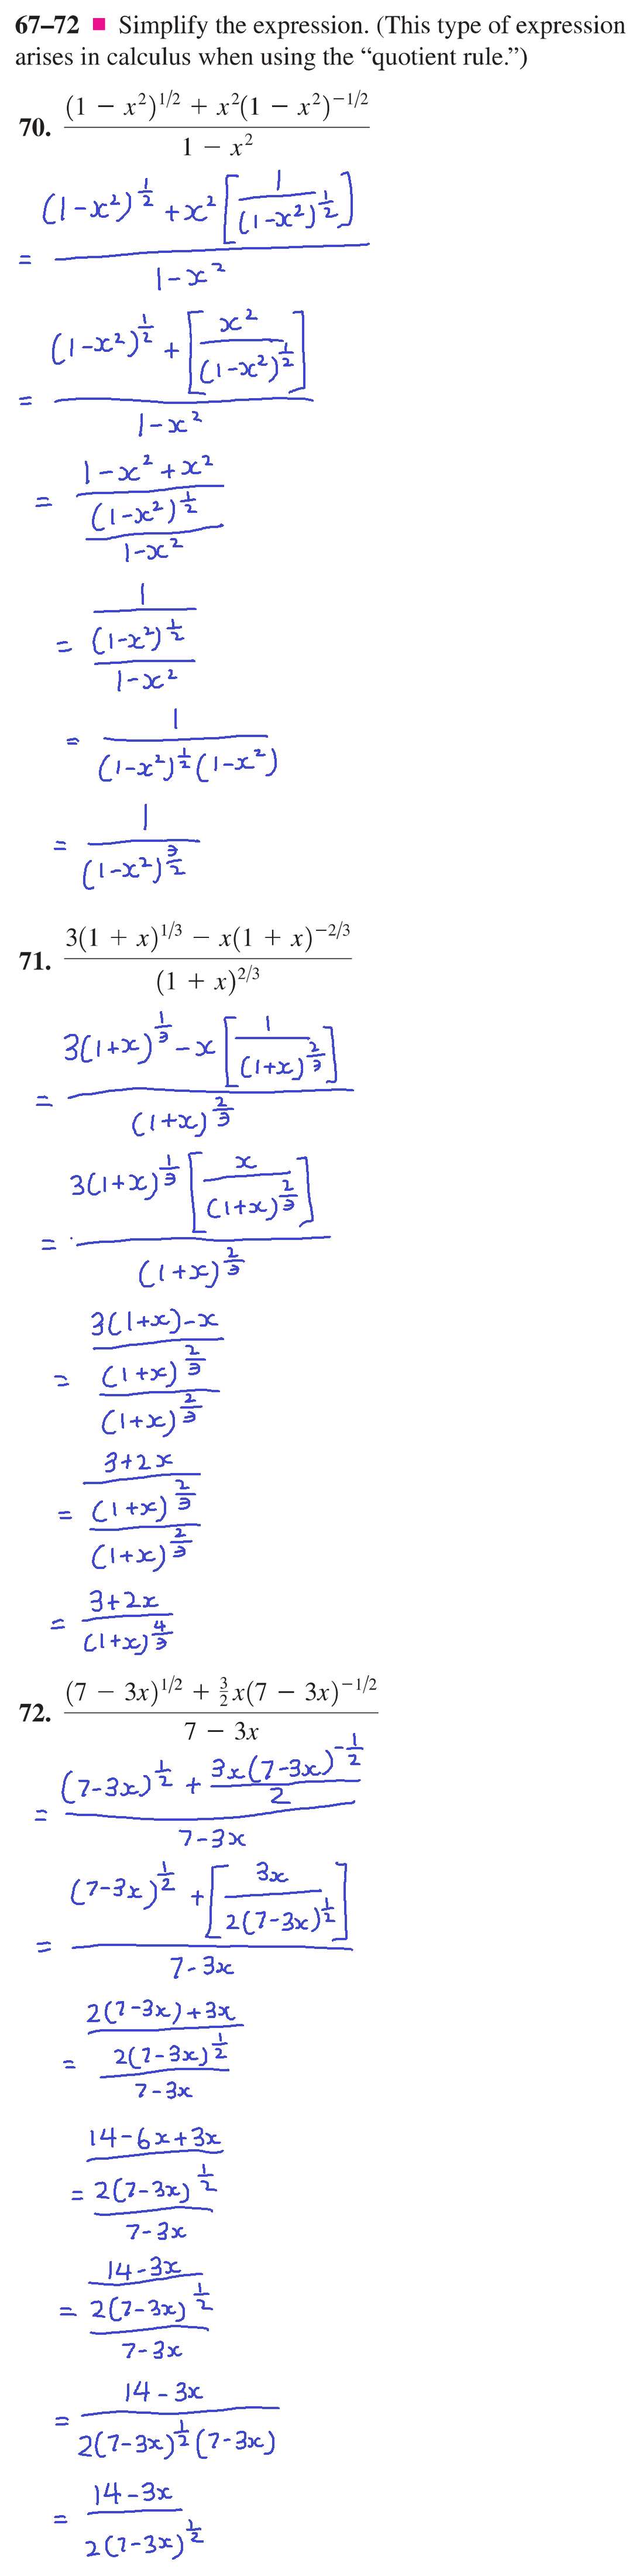 67–72 ■ Simplify the expression. (This type of expression
arises in calculus when using the “quotient rule.”)
70. ((1 − x²)^(1/2) + x²(1 − x²)^(−1/2)) / (1 − x²)
= ((1-x²)^(1/2) + x² [1 / (1-x²)^(1/2)]) / (1-x²)
= ((1-x²)^(1/2) + [x² / (1-x²)^(1/2)]) / (1-x²)
= ((1-x²+x²) / (1-x²)^(1/2)) / (1-x²)
= (1 / (1-x²)^(1/2)) / (1-x²)
= 1 / ((1-x²)^(1/2) (1-x²))
= 1 / (1-x²)^(3/2)
71. (3(1 + x)^(1/3) − x(1 + x)^(−2/3)) / (1 + x)^(2/3)
= (3(1+x)^(1/3) - x [1 / (1+x)^(2/3)]) / (1+x)^(2/3)
= (3(1+x)^(1/3) [x / (1+x)^(2/3)]) / (1+x)^(2/3)
= ((3(1+x)-x) / (1+x)^(2/3)) / (1+x)^(2/3)
= ((3+2x) / (1+x)^(2/3)) / (1+x)^(2/3)
= (3+2x) / (1+x)^(4/3)
72. ((7 − 3x)^(1/2) + (3/2)x(7 − 3x)^(−1/2)) / (7 − 3x)
= ((7-3x)^(1/2) + (3x(7-3x)^(-1/2)) / 2) / (7-3x)
= ((7-3x)^(1/2) + [3x / (2(7-3x)^(1/2))]) / (7-3x)
= ((2(7-3x)+3x) / (2(7-3x)^(1/2))) / (7-3x)
= ((14-6x+3x) / (2(7-3x)^(1/2))) / (7-3x)
= ((14-3x) / (2(7-3x)^(1/2))) / (7-3x)
= (14-3x) / (2(7-3x)^(1/2) (7-3x))
= (14-3x) / (2(7-3x)^(1/2))